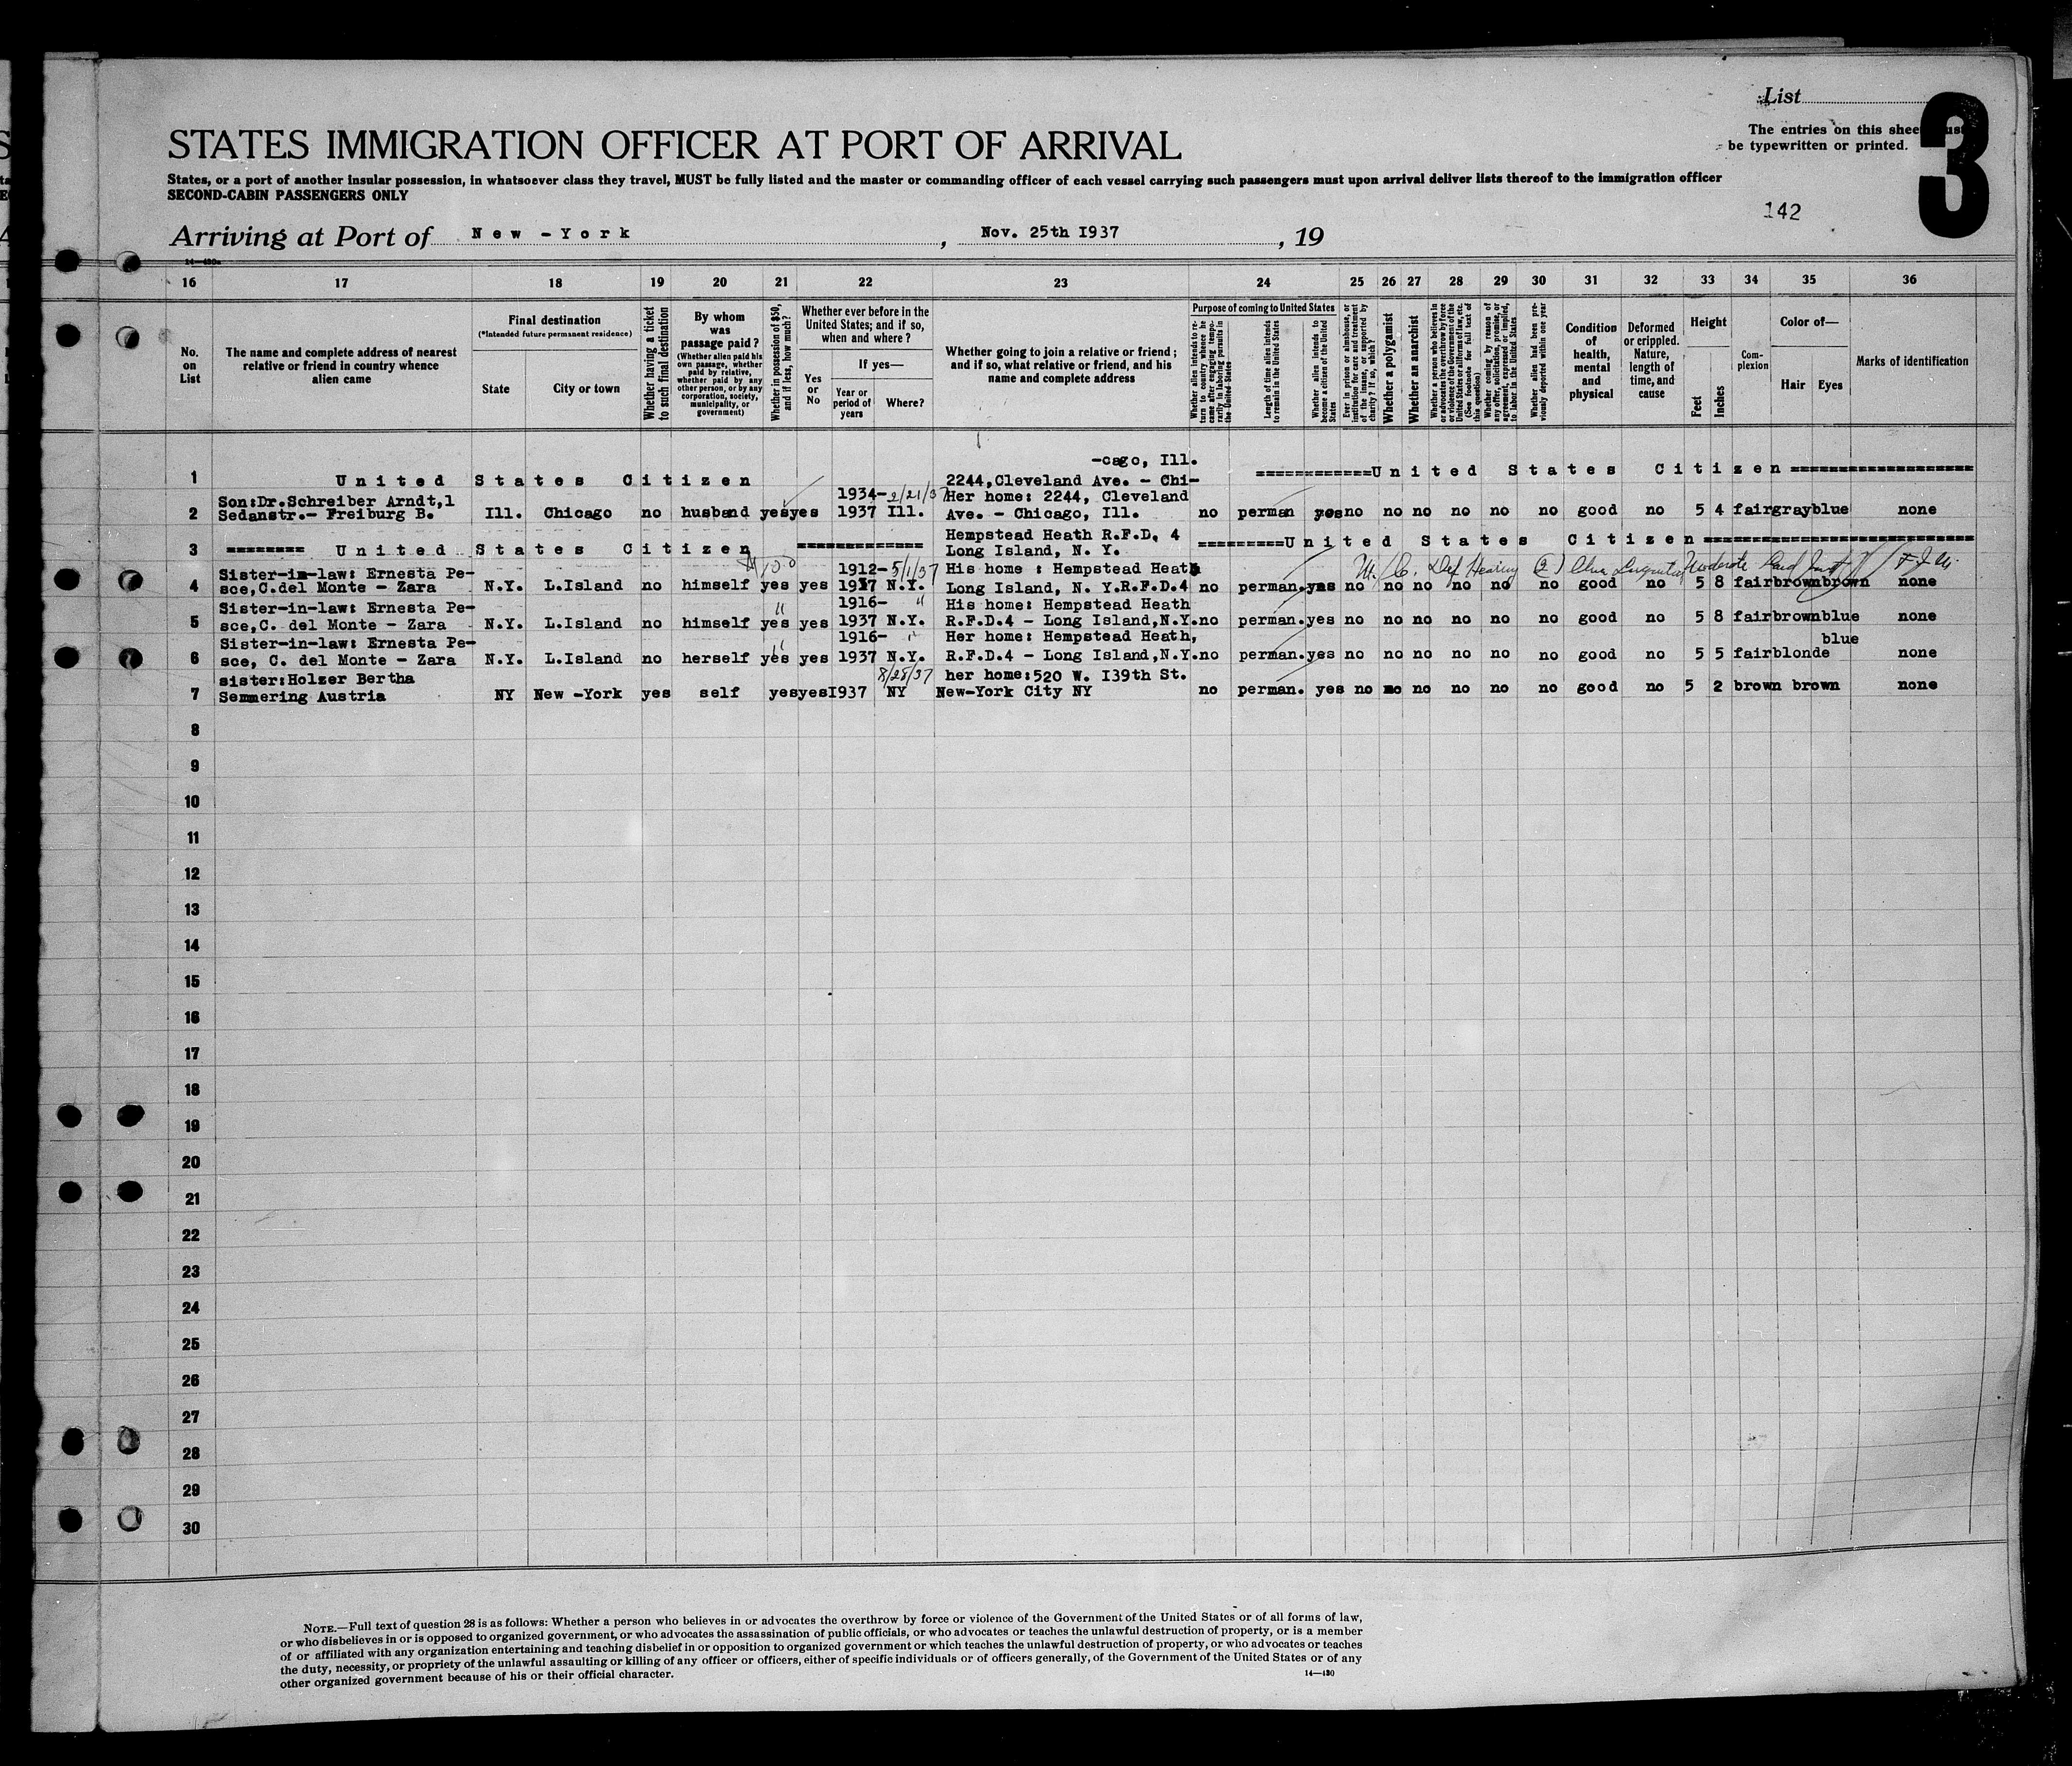 List
The entries on this sheet must
be typewritten or printed.
3
STATES IMMIGRATION OFFICER AT PORT OF ARRIVAL
States, or a port of another insular possession, in whatsoever class they travel, MUST be fully listed and the master or commanding officer of each vessel carrying such passengers must upon arrival deliver lists thereof to the immigration officer
SECOND-CABIN PASSENGERS ONLY
142
Arriving at Port of New -York, Nov. 25th 1937, 19
16 17 18 19 20 21 22 23 24 25 26 27 28 29 30 31 32 33 34 35 36
No. on List
The name and complete address of nearest relative or friend in country whence alien came
Final destination
(*Intended future permanent residence)
State
City or town
Whether having a ticket to such final destination
By whom was passage paid?
(Whether alien paid his own passage, whether paid by relative, whether paid by any other person, or by any corporation, society, municipality, or government)
Whether in possession of $50, and if less, how much?
Whether ever before in the United States; and if so, when and where?
Yes or No
If yes—
Year or period of years
Where?
Whether going to join a relative or friend; and if so, what relative or friend, and his name and complete address
Purpose of coming to United States
Whether alien intends to return to country whence he came after engaging temporarily in laboring pursuits in the United States
Length of time alien intends to remain in the United States
Whether alien intends to become a citizen of the United States
Ever in prison or almshouse, or institution for care and treatment of the insane, or supported by charity? If so, which?
Whether a polygamist
Whether an anarchist
Whether a person who believes in or advocates the overthrow by force or violence of the Government of the United States or all forms of law, etc. (See footnote for full text of this question)
Whether coming by reason of any offer, solicitation, promise, or agreement, expressed or implied, to labor in the United States
Whether alien had been previously deported within one year
Condition of health, mental and physical
Deformed or crippled. Nature, length of time, and cause
Height
Feet
Inches
Complexion
Color of—
Hair Eyes
Marks of identification
-cago, Ill.
1 United States Citizen 2244,Cleveland Ave. - Chi- ============United States Citizen===================
Son:Dr.Schreiber Arndt,1 1934- 2/21/37 Her home: 2244, Cleveland
2 Sedanstr.- Freiburg B. Ill. Chicago no husband yesyes 1937 Ill. Ave. - Chicago, Ill. no perman yesno no no no no no good no 5 4 fairgrayblue none
Hempstead Heath R.F.D. 4
3 ======== United States Citizen ============= Long Island, N. Y. =========United States Citizen============================
Sister-in-law: Ernesta Pe- 1912- 5/1/37 His home : Hempstead Heath Def Hearing (2)
4 sce,C.del Monte - Zara N.Y. L.Island no himself yes yes 1937 N.Y. Long Island, N. Y.R.F.D.4 no perman.yes no no no no no no good no 5 8 fairbrownbrown none
Sister-in-law: Ernesta Pe- " 1916- " His home: Hempstead Heath
5 sce,C. del Monte - Zara N.Y. L.Island no himself yes yes 1937 N.Y. R.F.D.4 - Long Island,N.Y.no perman.yes no no no no no no good no 5 8 fairbrownblue none
Sister-in-law: Ernesta Pe- " 1916- " Her home: Hempstead Heath, blue
6 sce, C. del Monte - Zara N.Y. L.Island no herself yes yes 1937 N.Y. R.F.D.4 - Long Island,N.Y.no perman.yes no no no no no no good no 5 5 fairblonde none
sister:Holzer Bertha 8/28/37 her home:520 W. I39th St.
7 Semmering Austria NY New -York yes self yesyesI937 NY New-York City NY no perman. yes no no no no no no good no 5 2 brown brown none
8
9
10
11
12
13
14
15
16
17
18
19
20
21
22
23
24
25
26
27
28
29
30
NOTE.—Full text of question 28 is as follows: Whether a person who believes in or advocates the overthrow by force or violence of the Government of the United States or of all forms of law,
or who disbelieves in or is opposed to organized government, or who advocates the assassination of public officials, or who advocates or teaches the unlawful destruction of property, or is a member
of or affiliated with any organization entertaining and teaching disbelief in or opposition to organized government or which teaches the unlawful destruction of property, or who advocates or teaches
the duty, necessity, or propriety of the unlawful assaulting or killing of any officer or officers, either of specific individuals or of officers generally, of the Government of the United States or of any
other organized government because of his or their official character.
14—430